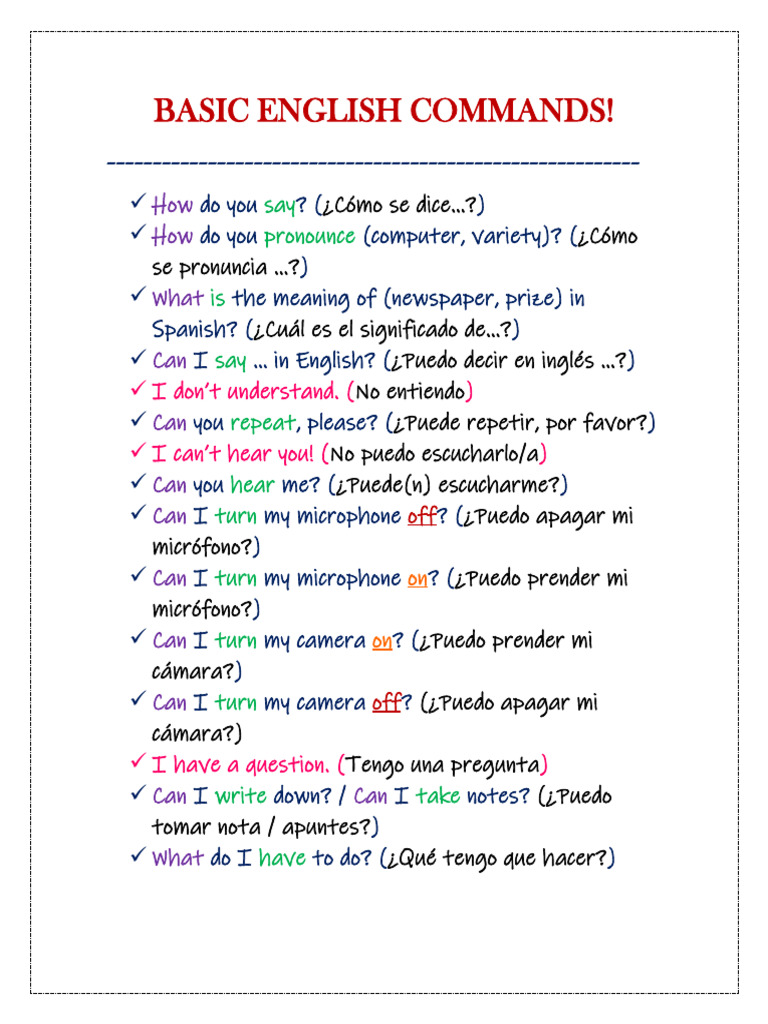 BASIC ENGLISH COMMANDS!
----------------------------------------------------------
✓ How do you say? (¿Cómo se dice...?)
✓ How do you pronounce (computer, variety)? (¿Cómo
se pronuncia ...?)
✓ What is the meaning of (newspaper, prize) in
Spanish? (¿Cuál es el significado de...?)
✓ Can I say ... in English? (¿Puedo decir en inglés ...?)
✓ I don't understand. (No entiendo)
✓ Can you repeat, please? (¿Puede repetir, por favor?)
✓ I can't hear you! (No puedo escucharlo/a)
✓ Can you hear me? (¿Puede(n) escucharme?)
✓ Can I turn my microphone off? (¿Puedo apagar mi
micrófono?)
✓ Can I turn my microphone on? (¿Puedo prender mi
micrófono?)
✓ Can I turn my camera on? (¿Puedo prender mi
cámara?)
✓ Can I turn my camera off? (¿Puedo apagar mi
cámara?)
✓ I have a question. (Tengo una pregunta)
✓ Can I write down? / Can I take notes? (¿Puedo
tomar nota / apuntes?)
✓ What do I have to do? (¿Qué tengo que hacer?)